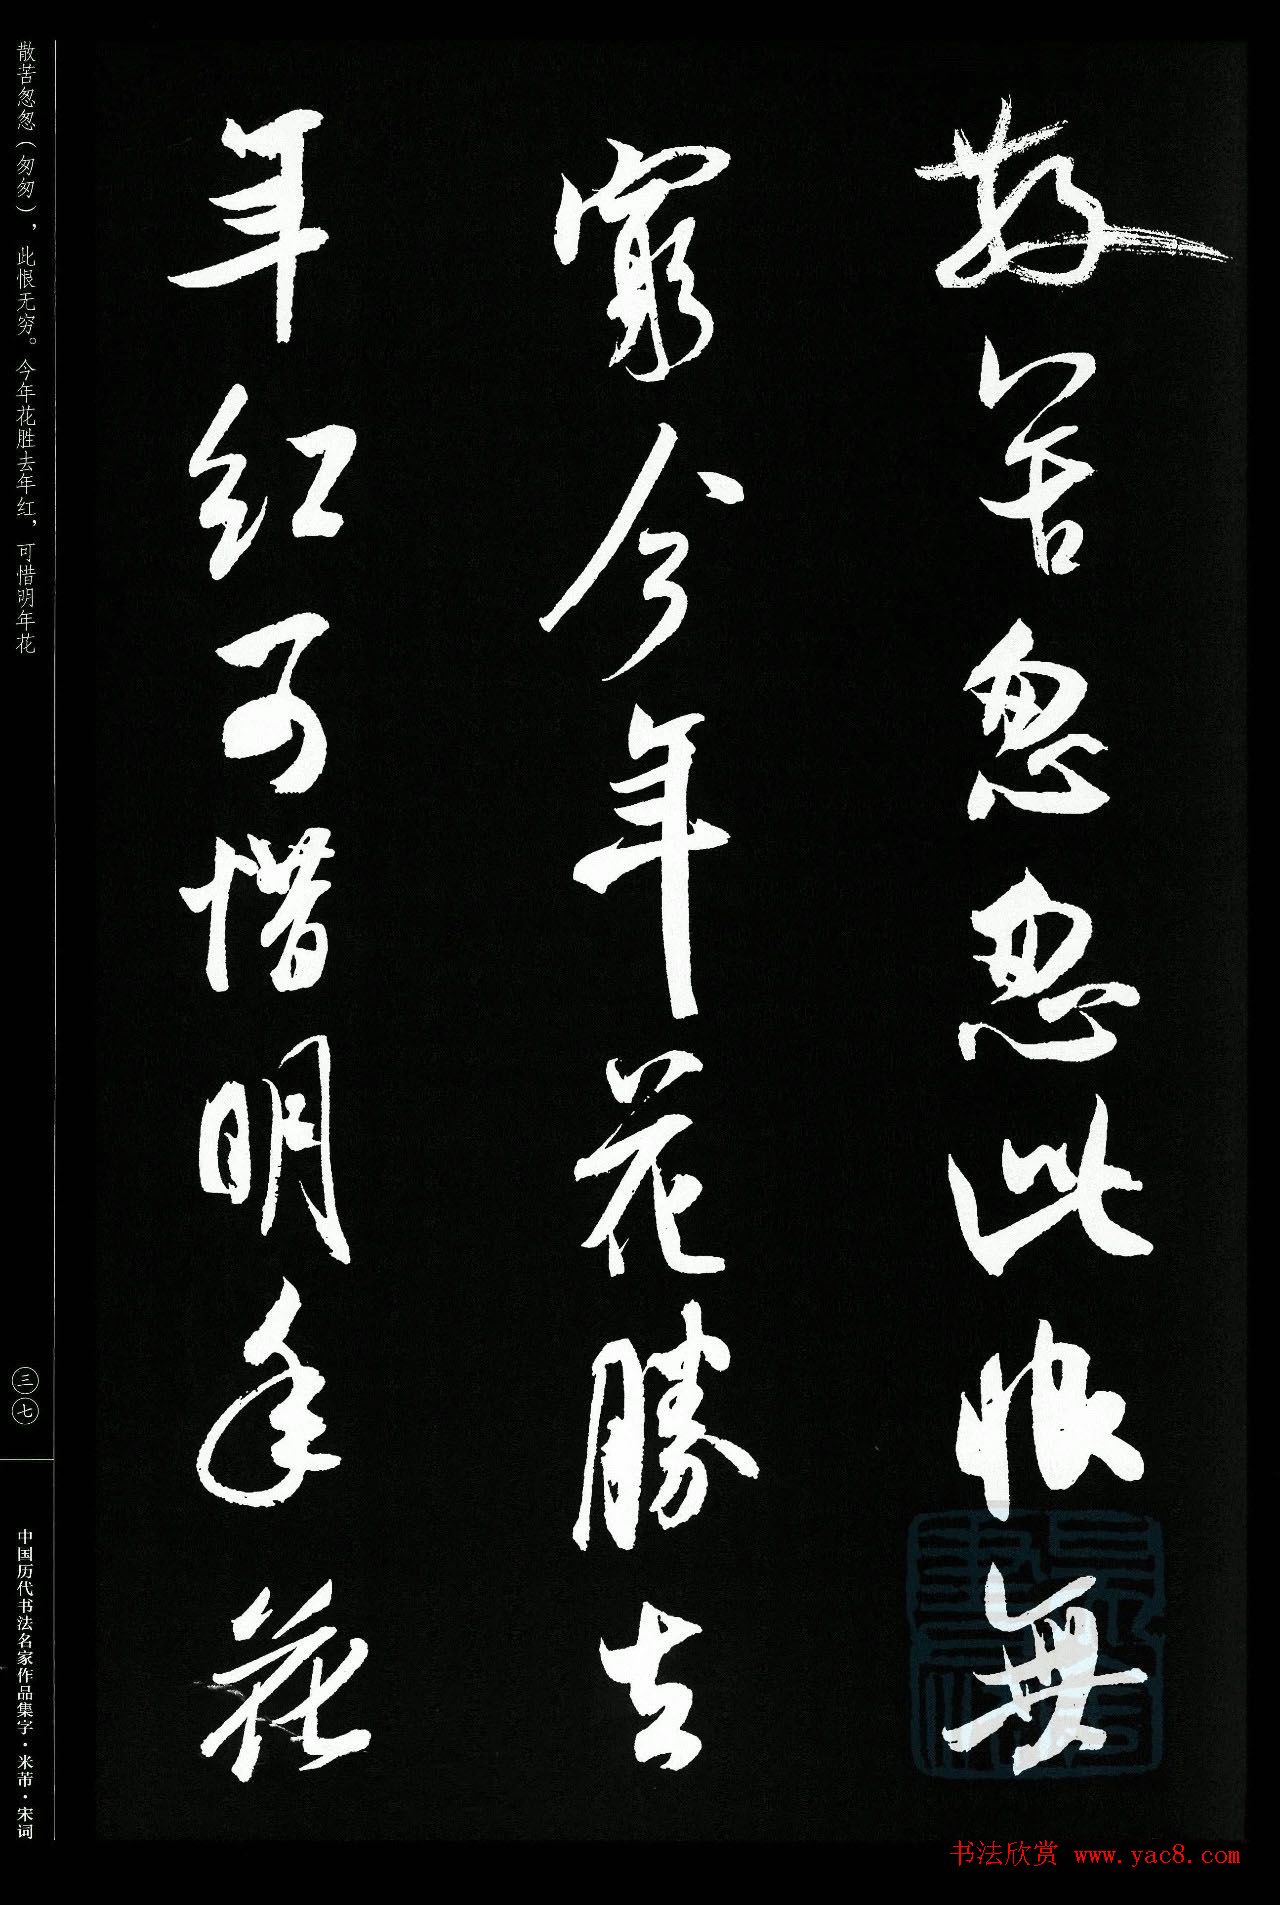 散苦怱怱此恨無
窮今年花勝去
年紅可惜明年花
散苦怱怱（匆匆），此恨无穷。今年花胜去年红，可惜明年花
三七
中国历代书法名家作品集字·米芾·宋词
书法欣赏 www.yac8.com